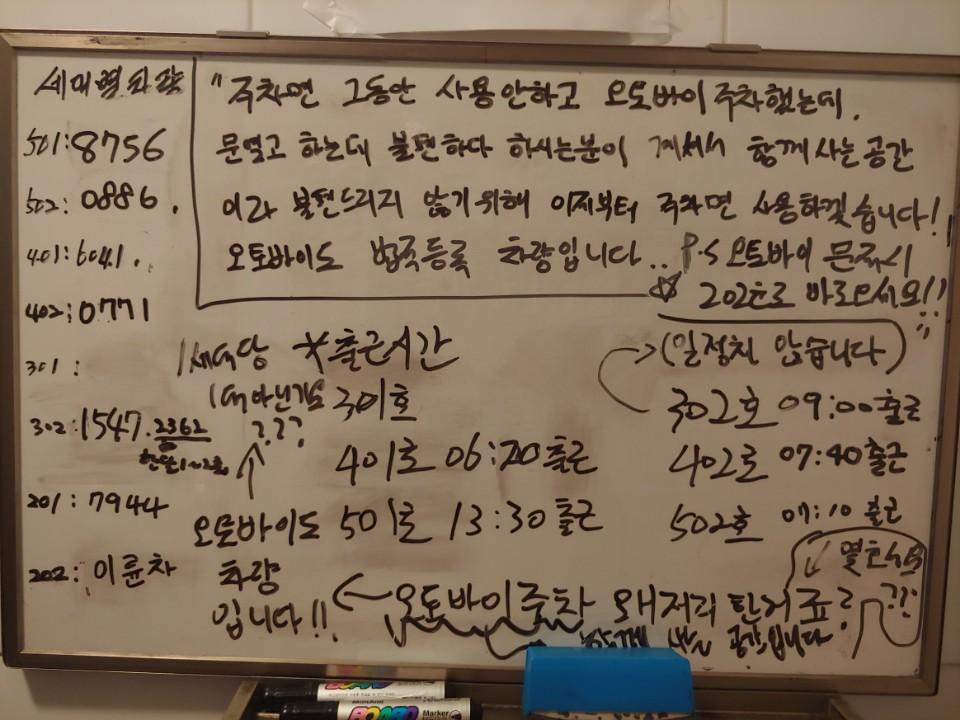 세대별차량
501:8756
502: 0886.
401:6041.
402:0771
301 :
302:1547.2362
201: 7944
202: 이륜차
" 주차면 그동안 사용안하고 오토바이주차했는데.
문열고 하는데 불편하다 하시는분이 계셔서 함께사는공간
이라 불편드리지 않기위해 이제부터 주차면 사용하겠습니다!"
오토바이도 법적등록 차량입니다..
P.S 오토바이 문제시
☆ 202호로 바로오세요!!
1세대당 *출근시간
1대아닌가요
???
301호
401호 06:20출근
오토바이도
501호 13:30출근
(일정치 않습니다)
302호 09:00출근
402호 07:40출근
502호 07:10 출근
차량
입니다!!
오토바이주차 왜저리 탄거죠?
함께 사는 공간입니다
??
BOARD
Marker
BOARD